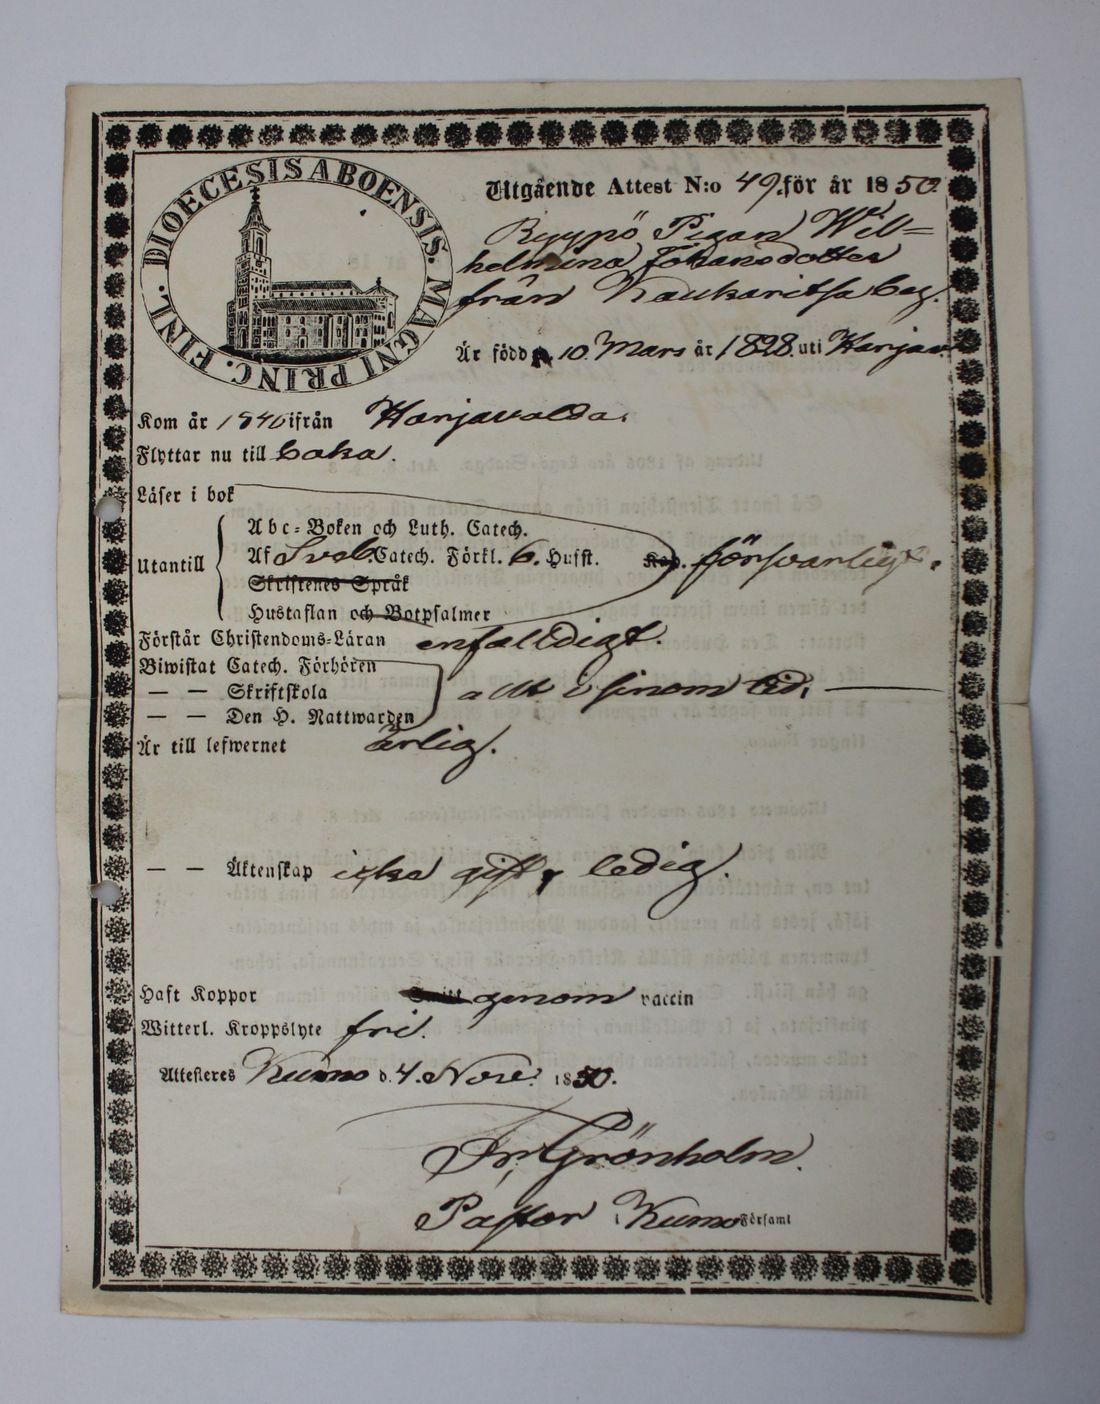 DIOECESIS ABOENSIS. MAGNI PRINC. FINL.
Utgående Attest N:o 49. för år 1850
Pigan Wil=
helmina Johansdotter
från
Är född 10 Mars år 1828. uti Harjav
Kom år 1840 ifrån Harjavalda.
Flyttar nu till
Läser i bok
Abc=Boken och Luth. Catech.
Utantill Af Sveb. Catech. Förkl. 6. Hufst. försvarligt.
Skriftenes Språk
Hustaflan och Botpsalmer
Förstår Christendoms=Läran enfaldigt.
Biwistat Catech. Förhören
— — Skriftskola allt i sinom tid.
— — Den H. Nattwarden
Är till lefwernet ärlig.
— — Äktenskap icke gift, ledig.
Haft Koppor genom vaccin
Witterl. Kroppslyte fri.
Attesteras Kumo d. 4. Nov. 1850.
Fr. Grönholm.
Pastor i Kumo Församl